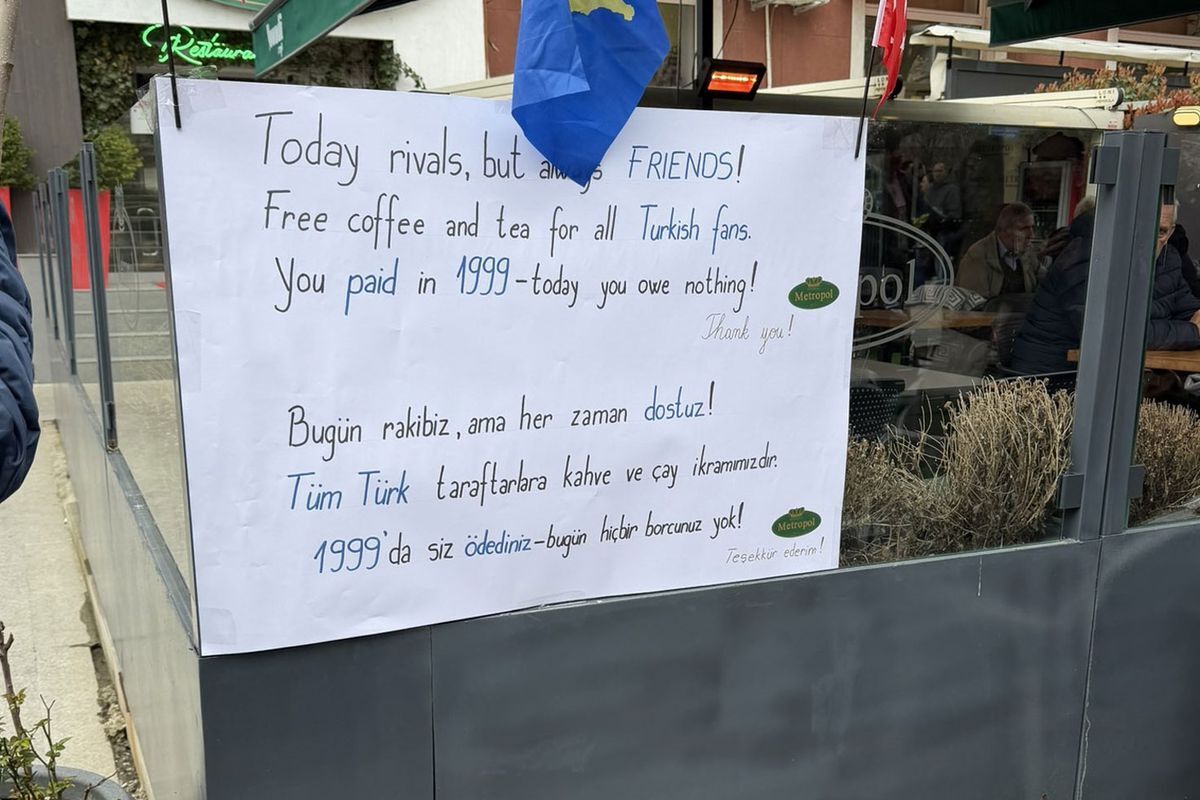 Restaura
Today rivals, but always FRIENDS!
Free coffee and tea for all Turkish fans.
You paid in 1999 - today you owe nothing!
Metropol
Thank you!
Bugün rakibiz, ama her zaman dostuz!
Tüm Türk taraftarlara kahve ve çay ikramımızdır.
1999'da siz ödediniz - bugün hiçbir borcunuz yok!
Metropol
Teşekkür ederim!
pol